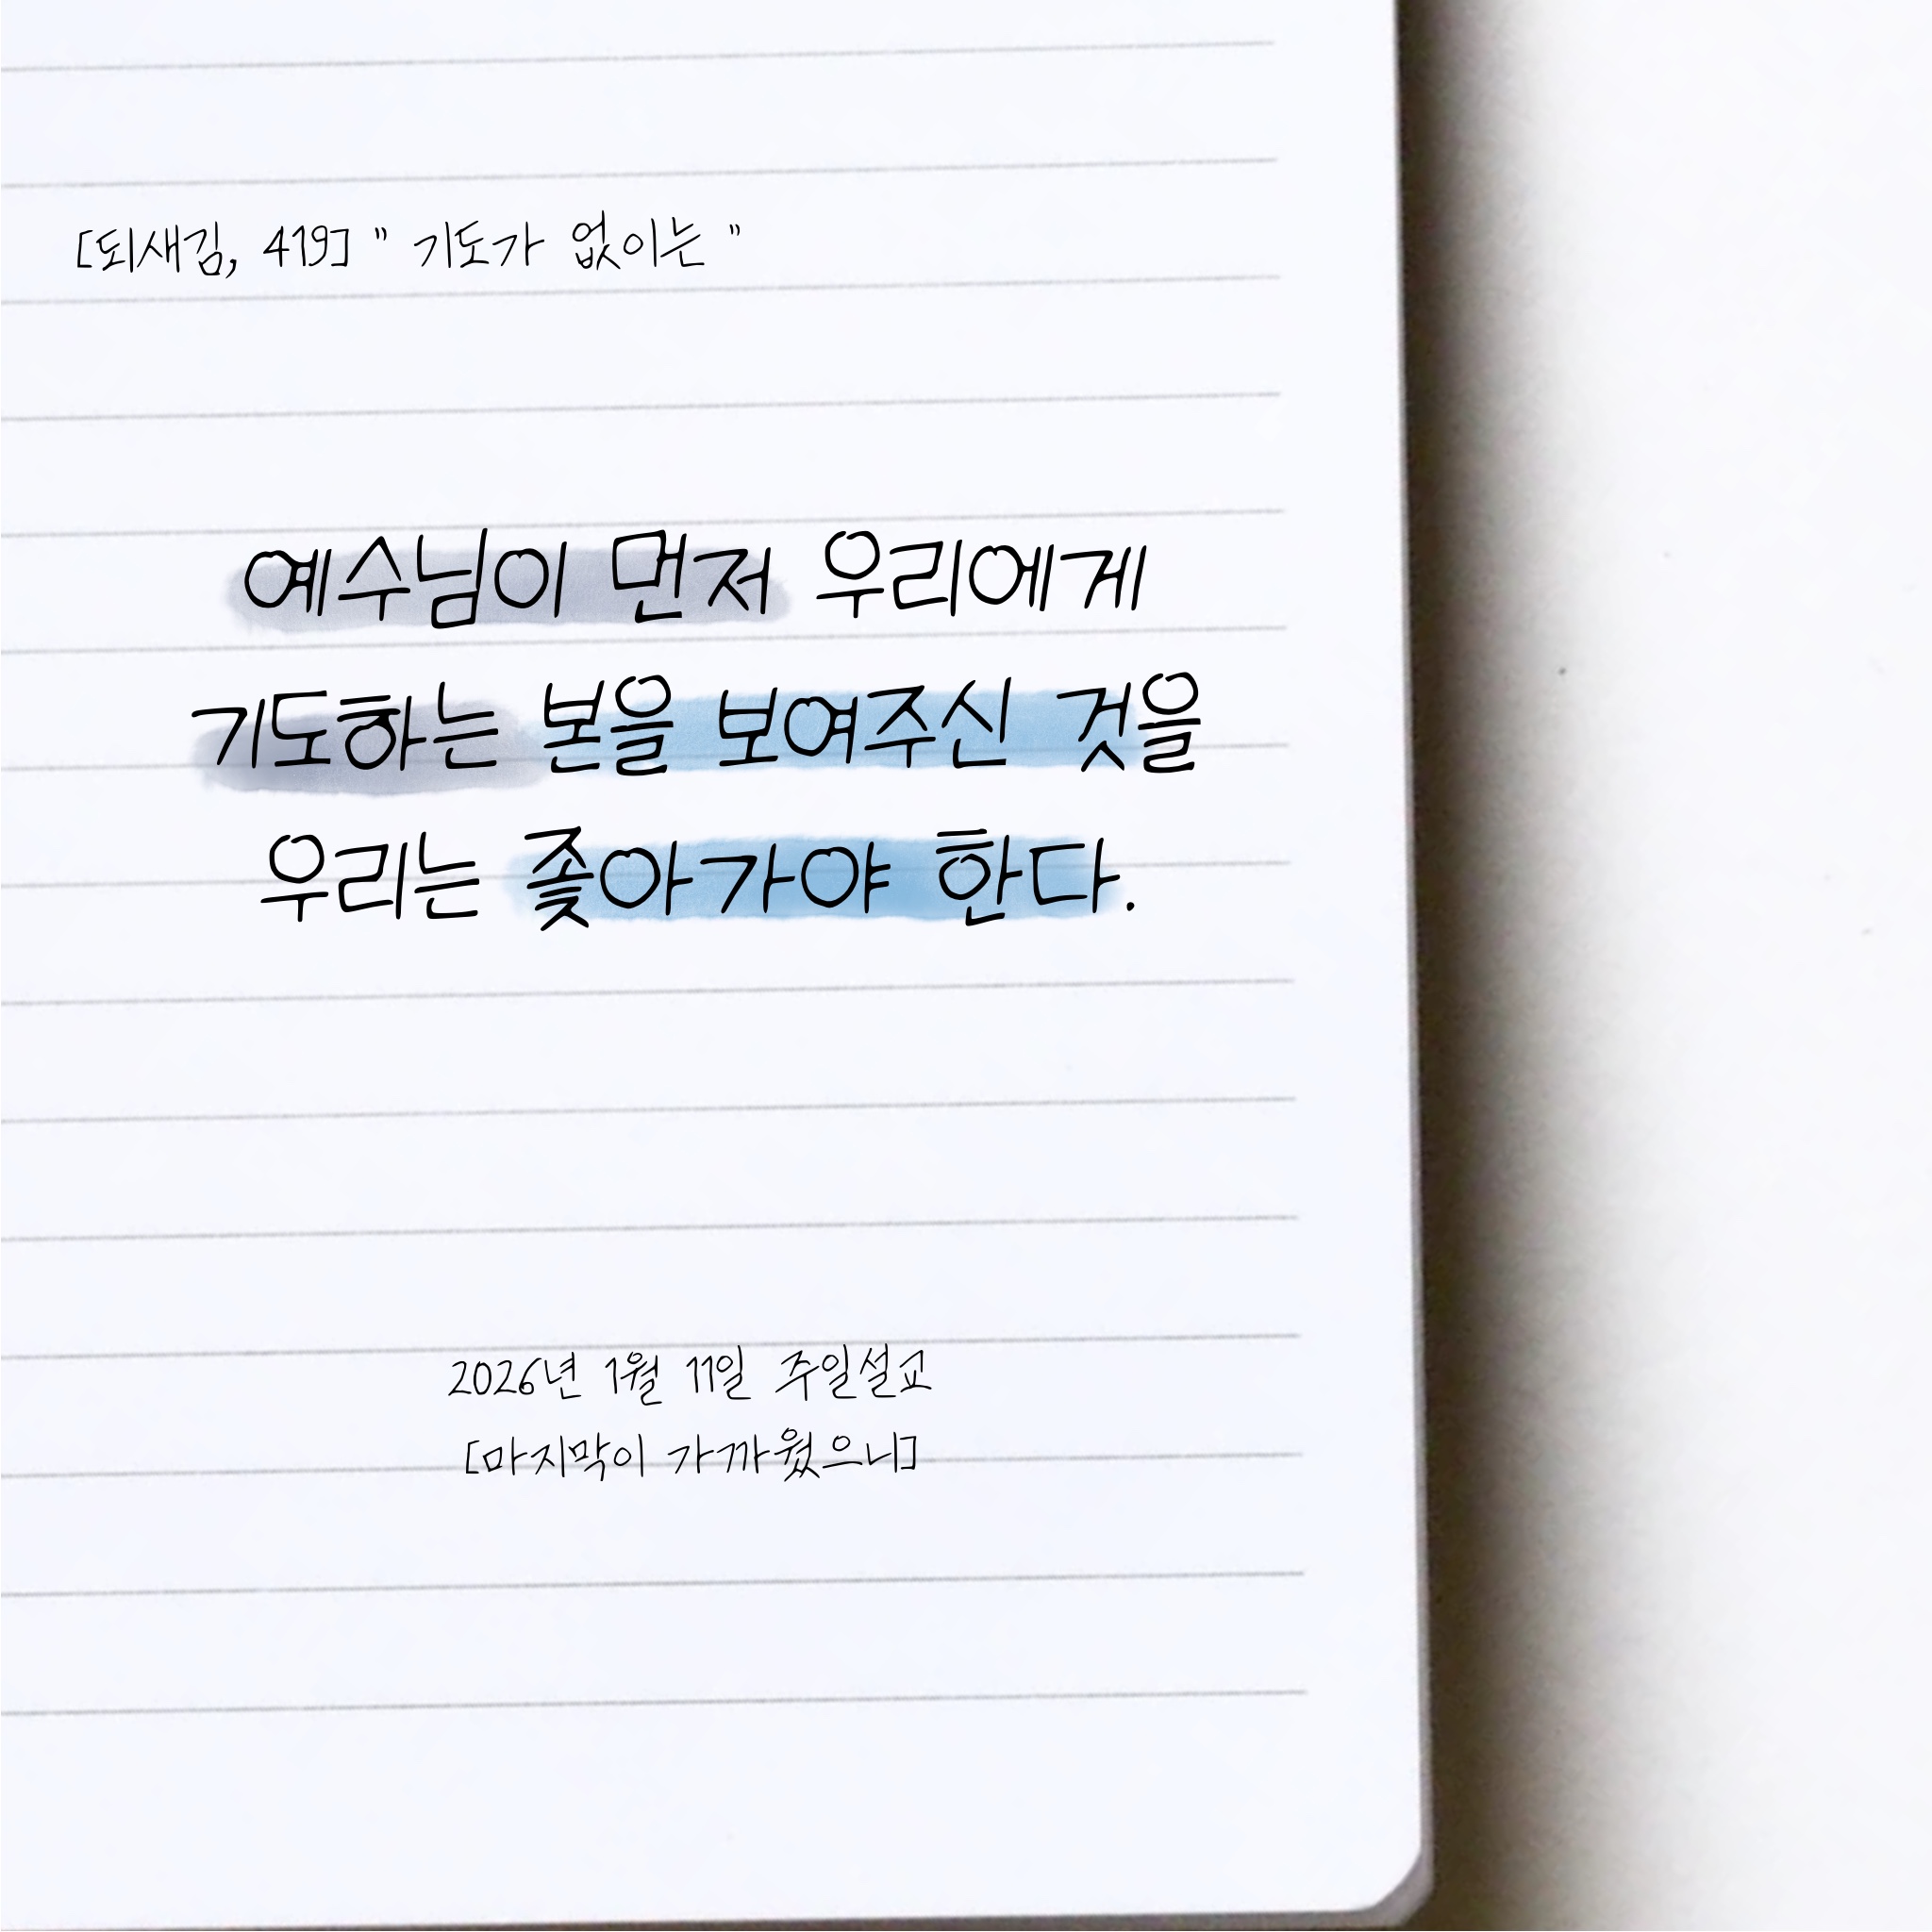 [되새김, 419] " 기도가 없이는 "
예수님이 먼저 우리에게
기도하는 본을 보여주신 것을
우리는 좇아가야 한다.
2026년 1월 11일 주일설교
[마지막이 가까웠으니]